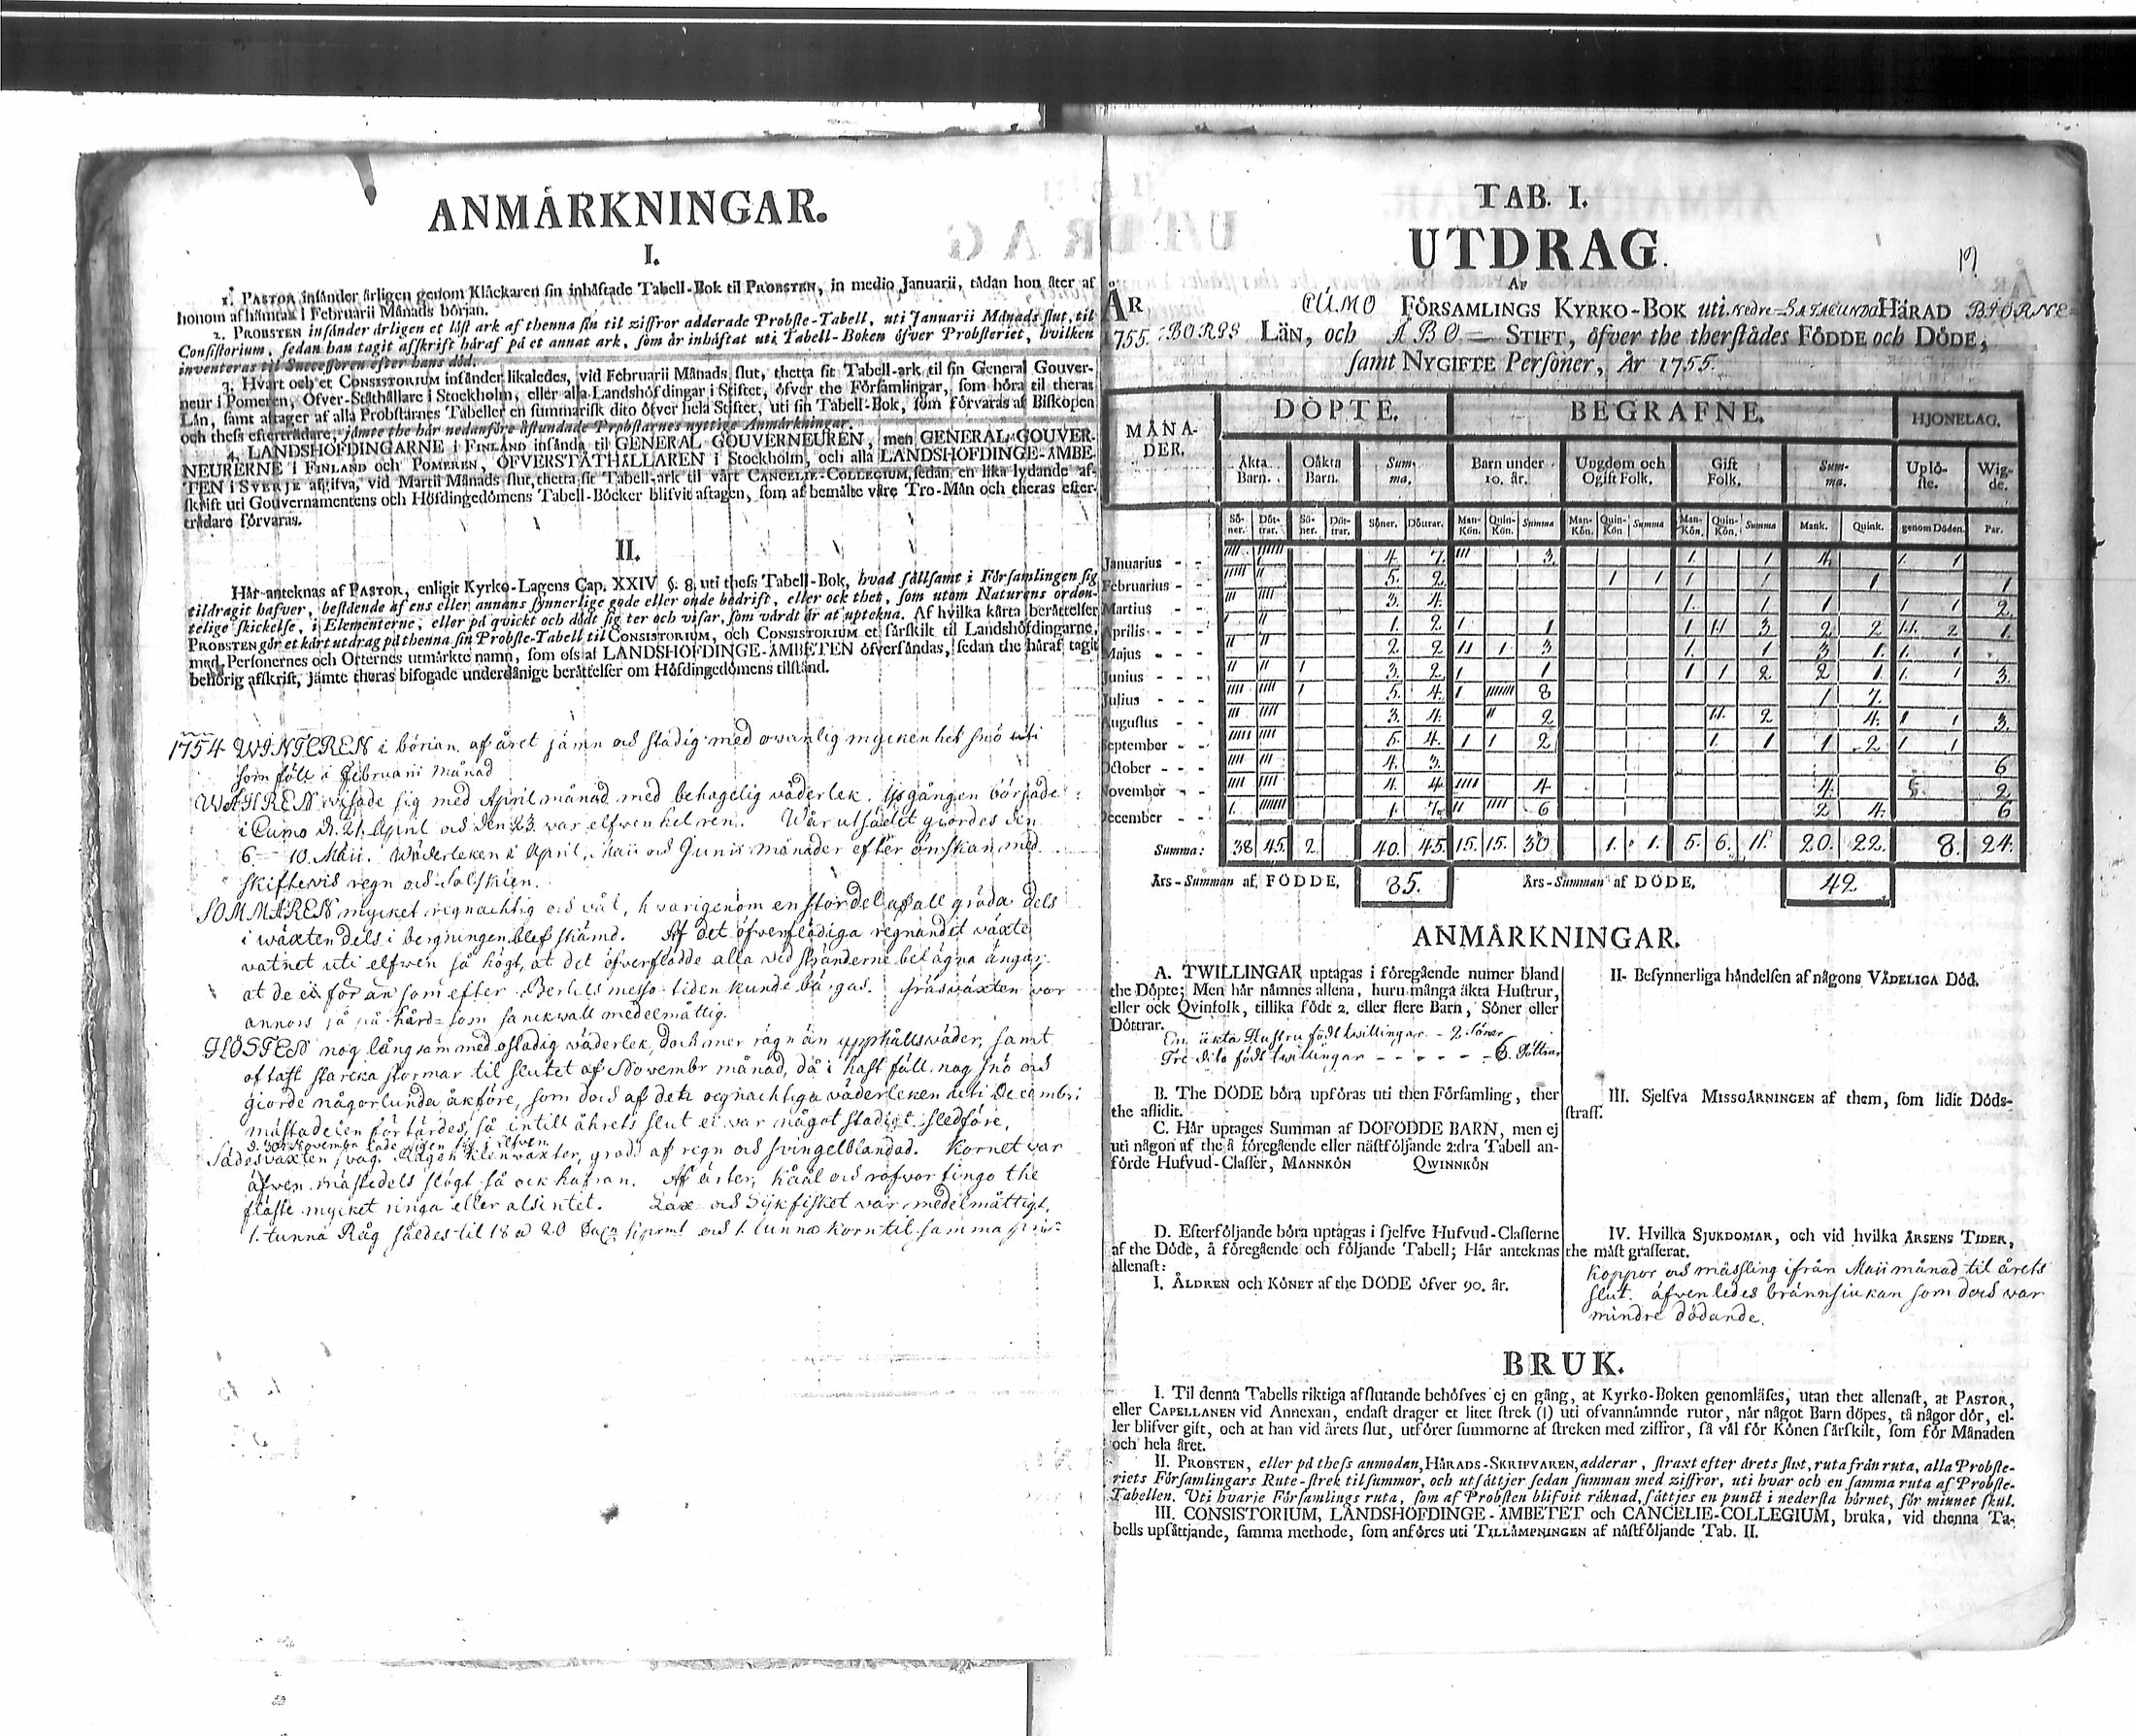 ANMÅRKNINGAR.
I.
1. PASTOR insånder årligen genom Klåckaren sin inhåftade Tabell-Bok til PROBSTEN, in medio Januarii, tådan hon åter af
honom afhåmtas i Februarii Månads början.
2. PROBSTEN insånder årligen et låst ark af thenna sin til ziffror adderade Probste-Tabell, uti Januarii Månads slut, til
Consistorium, sedan han tagit afskrift håraf på et annat ark, som år inhåftat uti Tabell-Boken öfver Probsteriet, hvilken
inventeras til Successoren efter hans död.
3. Hvart och et CONSISTORIUM insånder likaledes, vid Februarii Månads slut, thetta sit Tabell-ark til sin General Gouver-
neur i Pomeren, Öfver-Ståthållare i Stockholm, eller alla Landshöfdingar i Stiftet, öfver the Församlingar, som höra til theras
Lån, samt aftager af alla Probstarnes Tabeller en summarisk dito öfver hela Stiftet, uti sin Tabell-Bok, som förvaras af Biskopen
och thess efterträdare, jåmte the hår nedanföre åstundade Probstarnes nyttige Anmårkningar.
4. LANDSHÖFDINGARNE i FINLAND insånda til GENERAL GOUVERNEUREN, men GENERAL-GOUVER-
NEURERNE i FINLAND och POMEREN, ÖFVERSTÅTHÅLLAREN i Stockholm, och alla LANDSHÖFDINGE-ÅMBE-
TEN i SVERJE afgifva, vid Martii Månads slut, thetta sit Tabell-ark til vårt CANCELIE-COLLEGIUM, sedan en lika lydande af-
skrift uti Gouvernamentens och Höfdingedömens Tabell-Böcker blifvit aftagen, som af bemålte våre Tro-Mån och theras efter-
trådare förvaras.
II.
Hår anteknas af PASTOR, enligit Kyrko-Lagens Cap. XXIV §. 8. uti thess Tabell-Bok, hvad sållsamt i Församlingen sig
tildragit hafver, bestående af ens eller annans synnerlige gode eller onde bedrift, eller ock thet, som utom Naturens orden-
telige skickelse, i Elementerne, eller på qvickt och dödt sig ter och visar, som vårdt år at uptekna. Af hvilka kårta beråttelser
PROBSTEN gör et kårt utdrag på thenna sin Probste-Tabell til CONSISTORIUM, och CONSISTORIUM et sårskilt til Landshöfdingarne,
med Personernes och Orternes utmårkte namn, som oss af LANDSHÖFDINGE-ÅMBETEN öfversåndas, sedan the håraf tagit
behörig afskrift, jåmte theras bifogade underdånige beråttelser om Höfdingedömens tilstånd.
1754 WINTEREN i börian af året jämn och stadig med owanlig myckenhet snö uti
som föll i Februarii Månad
WÅHREN wisade sig med April månad med behagelig väderlek. Isgången började
i Cumo d. 21. April och den 23. war elfwen hel ren. Wår utsädet giordes den
6 = 10. Maii. Wäderleken i April, Maii och Junii månader efter önskan med
skiftevis regn och Solskien.
SOMMAREN mycket regnachtig och våt, hwarigenom en stor del af all gröda dels
i wäxten dels i bergningen blef skämd. Af det öfverflödiga regnandet växte
vatnet uti elfwen så högt, at det öfverflödde alla ved stränderne belägna ängar,
at de ei för än som efter Bertils messo-tiden kunde bärgas. Gräswäxten var
annors så på hård- som sanckwall medelmåttig.
HÖSTEN nog långsam med ostadig väderlek, doch mer rägn än upphålls väder, samt
oftast starcka stormar til slutet af Novembr månad, då i hast föll nog snö och
giorde någorlunda åkföre, som doch af den regnachtiga väderleken uti Decembri
måstadelen förtärdes, så intill åhrets slut ei var något stadigt slädföre.
Sädeswäxten svag. Rågen klenväxter, grodd af regn och svingelblandad. Kornet var
äfwen mästedels slögt så ock hafran. Af ärter, kåål och rofvor fingo the
fläste mycket ringa eller alsintet. Lax och Sijkfisket var medelmåttigt.
1. tunna Råg såldes til 18 a 20 Dal. Kpmt och 1. tunna korn til samma pris
TAB. I.
UTDRAG
AF
ÅR CUMO FÖRSAMLINGS KYRKO-BOK uti Nedre-SATACUNDA HÅRAD BIÖRNE=
1755. BORGS LÄN, och ÅBO STIFT, öfver the therstådes FÖDDE och DÖDE,
samt NYGIFTE Personer, År 1755.
MÅNA-DER. DÖPTE. BEGRAFNE. HJONELAG.
Åkta Barn. Oåkta Barn. Summa. Barn under 10. år. Ungdom och Ogift Folk. Gift Folk. Summa. Uplöste. Wigde.
Söner. Döttrar. Söner. Döttrar. Söner. Döttrar. Man-Kön. Quin-Kön. Summa Man-Kön. Quin-Kön. Summa Man-Kön. Quin-Kön. Summa Mank. Quink. genom Döden. Par.
Januarius - - 4. 7. 3. 1. 1 4. 1. 1
Februarius - - 5. 2. 1 1 1 1 1 1
Martius - - 3. 4. 1. 1. 1 1 1 2.
Aprilis - - 1. 2 1 1 1 11 3 2 2 11. 2 1.
Majus - - 2. 2 11 1 3 1. 1 3 1. 1. 1
Junius - - 1 3. 2 1 1 1 1 2 2 1. 1. 1 3.
Julius - - 1 5. 4. 1 8 1 7.
Augustus - - 3. 4. 2 11. 2 4. 1 1 3.
September - - 5. 4. 1 1 2 1. 1 1 2 1 1
October - - 4. 3. 6
November - - 4. 4 4 4. 2
December - - 1. 1. 7. 6 2 4. 6
Summa: 38 45. 2. 40. 45. 15. 15. 30 1. 1. 5. 6. 11. 20. 22. 8. 24.
Års-Summan af FÖDDE, 85. Års-Summan af DÖDE, 42
ANMÅRKNINGAR.
A. TWILLINGAR uptagas i föregående numer bland
the Döpte; Men hår nåmnes allena, huru många åkta Hustrur,
eller ock Qvinfolk, tillika födt 2. eller flere Barn, Söner eller
Döttrar.
En äkta Hustru födt twillingar - 2. Söner
Tre dito födt twillingar - - - - - 6. Döttrar
B. The DÖDE böra upföras uti then Församling, ther
the aflidit.
C. Hår uptages Summan af DÖFÖDDE BARN, men ej
uti någon af the å föregående eller nåstföljande 2:dra Tabell an-
förde Hufvud-Classer, MANNKÖN QWINNKÖN
D. Efterföljande böra uptagas i sjelfve Hufvud-Classerne
af the Döde, å föregående och följande Tabell; Hår anteknas
allenast:
I. ÅLDREN och KÖNET af the DÖDE öfver 90. år.
II- Besynnerliga håndelsen af någons VÅDELIGA DÖD.
III. Sjelfva MISSGÅRNINGEN af them, som lidit Döds-
straff.
IV. Hvilka SJUKDOMAR, och vid hvilka ÅRSENS TIDER,
the måst grasserat.
Koppor och mässling ifrån Maii månad til årets
slut. äfvenledes brännsiukan som doch var
mindre dödande.
BRUK.
I. Til denna Tabells riktiga afslutande behöfves ej en gång, at Kyrko-Boken genomlåses, utan thet allenast, at PASTOR,
eller CAPELLANEN vid Annexan, endast drager et litet strek (I) uti ofvannåmnde rutor, når något Barn döpes, tå någor dör, el-
ler blifver gift, och at han vid årets slut, utförer summorne af streken med ziffror, så vål för Könen sårskilt, som för Månaden
och hela året.
II. PROBSTEN, eller på thess anmodan, HÅRADS-SKRIFVAREN, adderar, straxt efter årets slut, ruta från ruta, alla Probste-
riets Församlingars Rute-strek til summor, och utsåttjer sedan summan med ziffror, uti hvar och en samma ruta af Probste-
Tabellen. Uti hvarje Församlings ruta, som af Probsten blifvit råknad, såttjes en punct i nedersta hörnet, för minnet skul.
III. CONSISTORIUM, LANDSHÖFDINGE-ÅMBETET och CANCELIE-COLLEGIUM, bruka, vid thenna Ta-
bells upsåttjande, samma methode, som anföres uti TILLÅMPNINGEN af nåstföljande Tab. II.